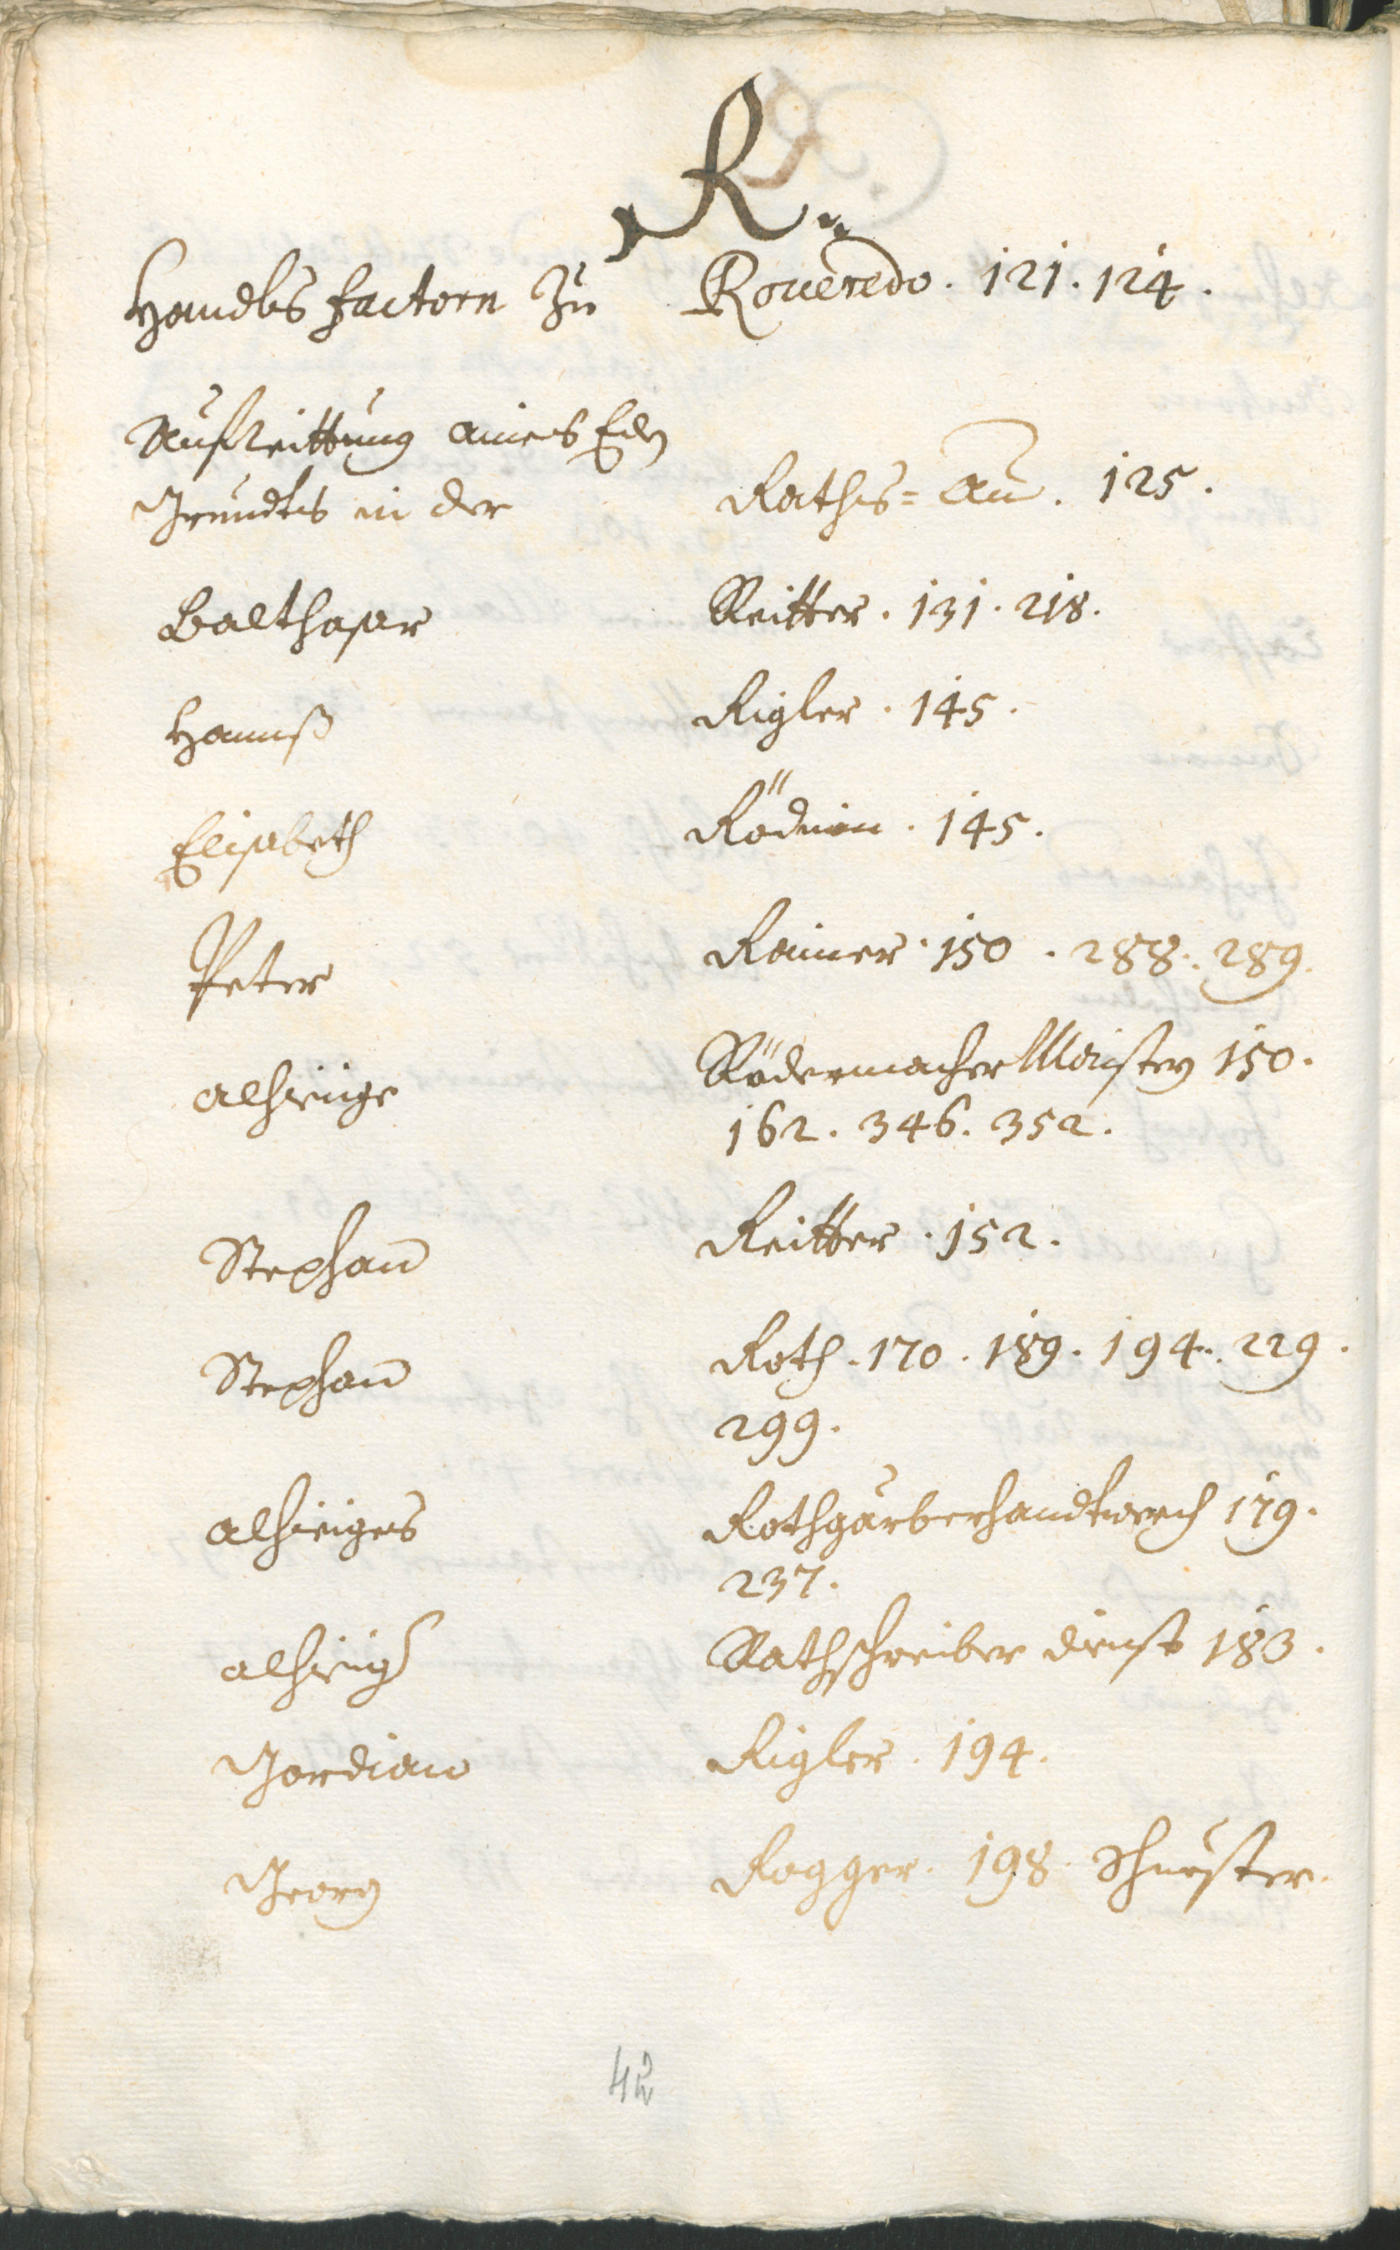 R.
Handls factorn zu Roueredo. 121. 124.
Außreittung aines Eden
Grundts in der Raths=Au. 125.
Balthasar Reitter. 131. 218.
Hannß Rigler. 145.
Elisabeth Rödnin. 145.
Peter Rainer. 150. 288. 289.
alhieige Rödermacher Maister 150.
162. 346. 352.
Stephan Reitter. 152.
Stephan Roth. 170. 189. 194. 229.
299.
alhieiges Rothgärberhandtwerch 179.
237.
alhieig Rathschreiber dienst 183.
Gordian Rigler. 194.
Georg Rogger. 198. Schuester.
42